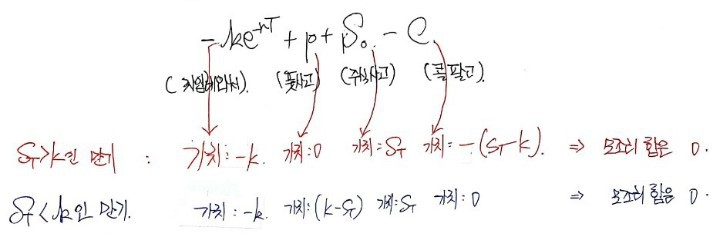 -ke^{-rT} + p + S₀ - C
(차입해와서). (풋사고) (주식사고) (콜 팔고).
S_T>k인 만기 : 가치:-k. 가치:0 가치:S_T 가치:-(S_T-k). ⇒ 모조리 합은 0.
S_T<k인 만기. 가치:-k. 가치:(k-S_T) 가치:S_T 가치:0 ⇒ 모조리 합은 0.